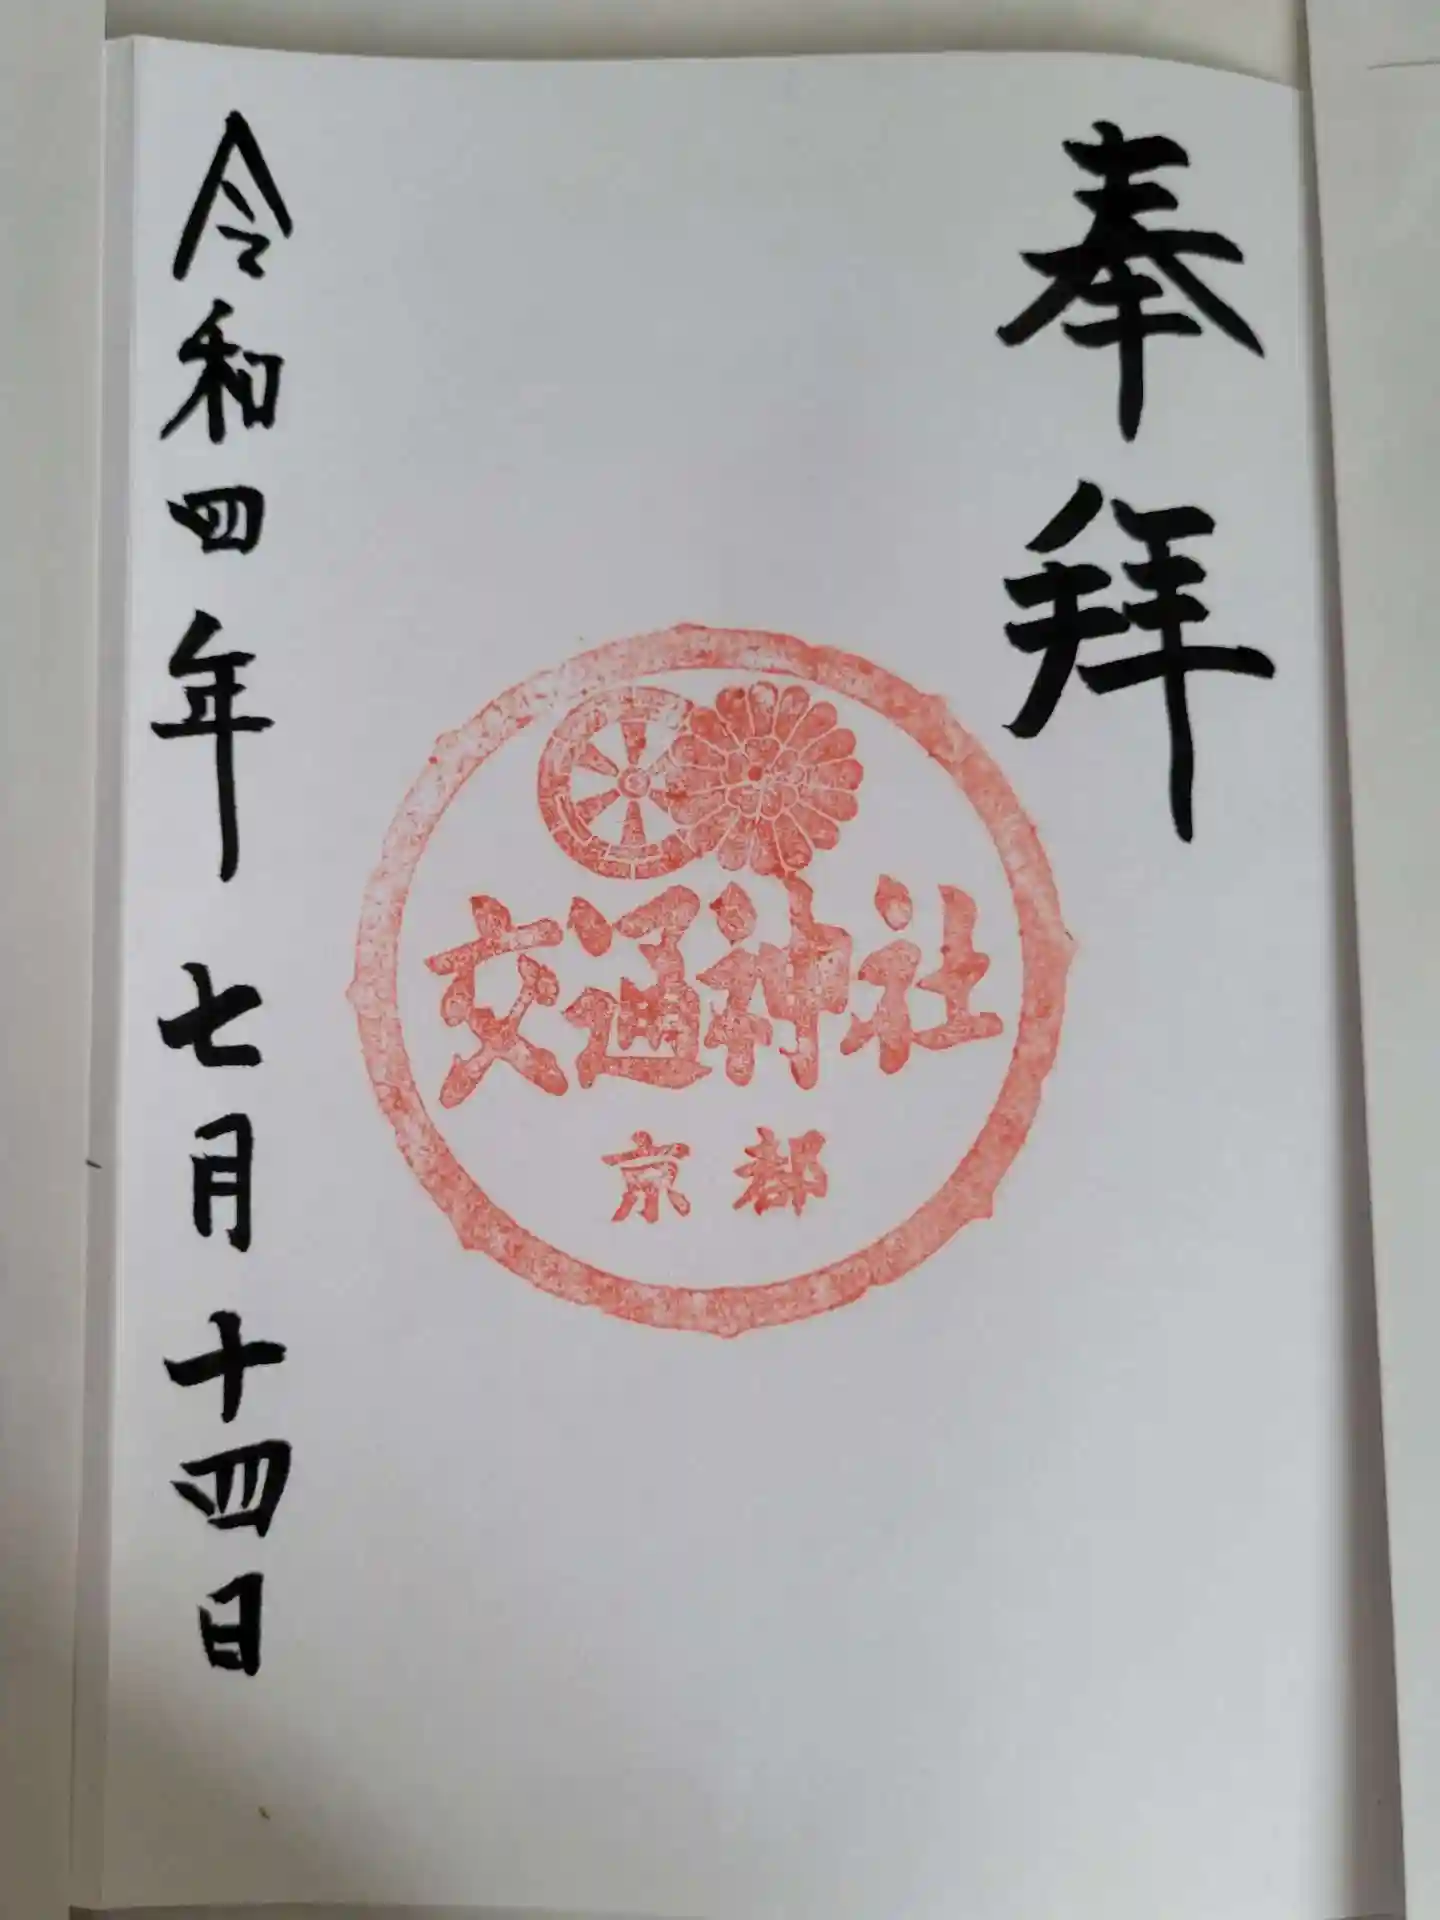 奉拜
交通神社
京都
令和四年七月十四日